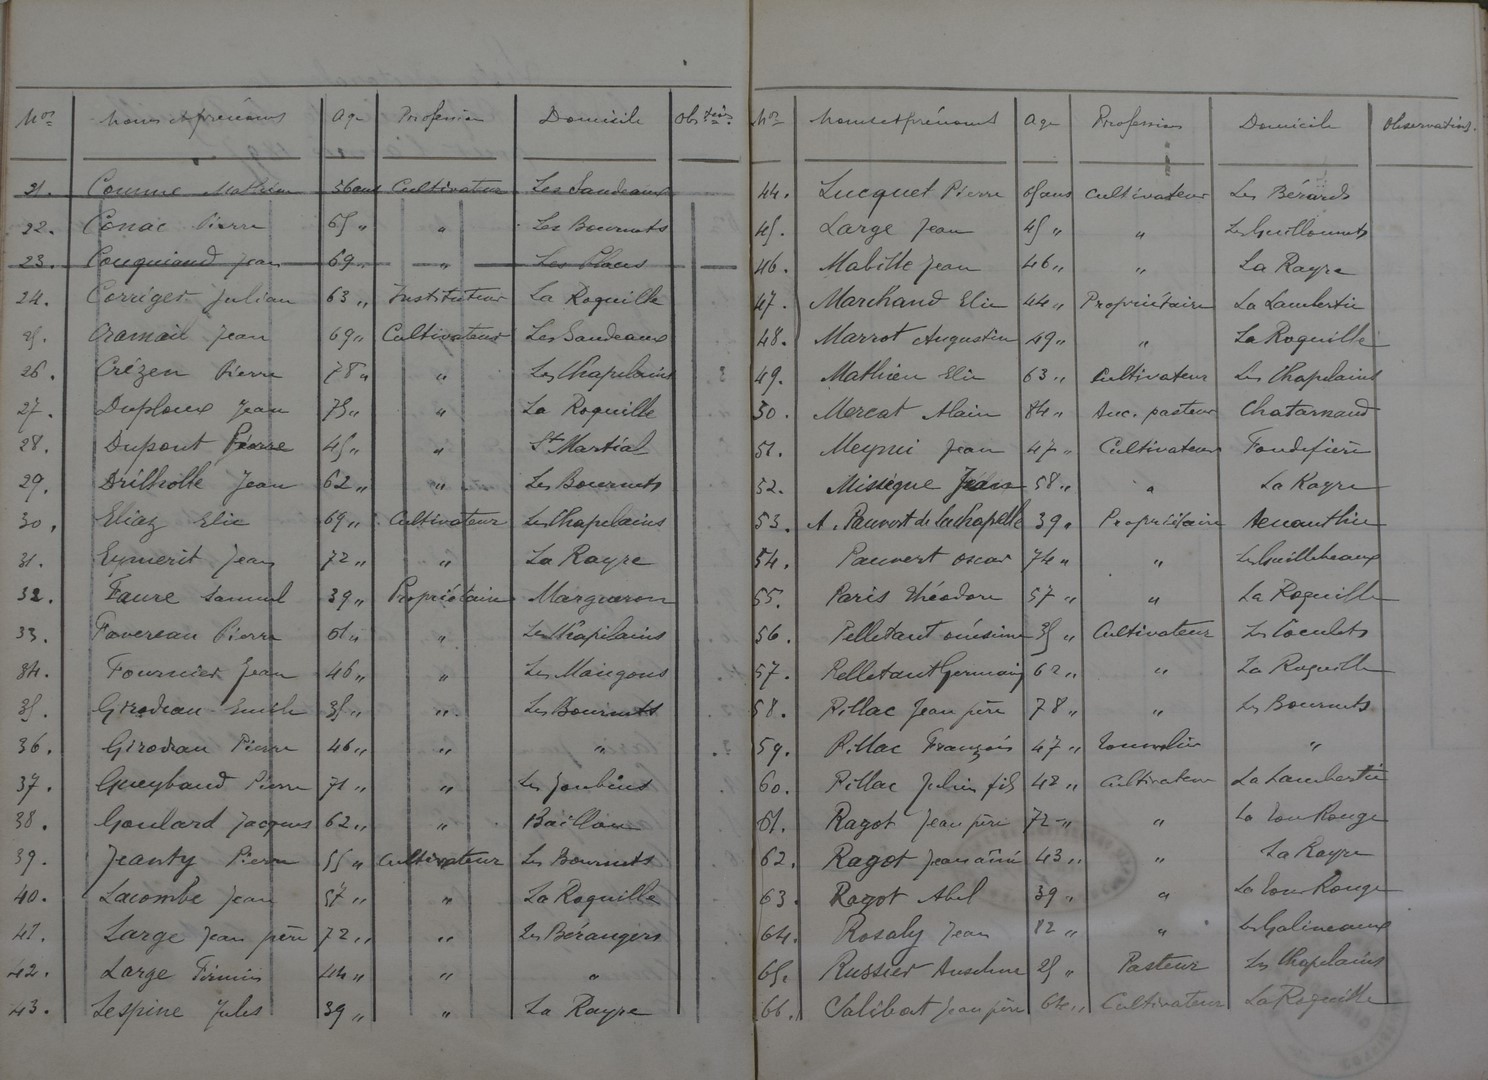 Nos Noms et prénoms Age Profession Domicile Obstions
21. Comme Mathieu 56 ans Cultivateur Les Sandeaux
22. Conac Pierre 65 " " Les Bournets
23. Couquiaud Jean 69 " " Les Places
24. Corriger Julian 63 " Instituteur La Roquille
25. Cramail Jean 69 " Cultivateur Les Sandeaux
26. Crézen Pierre 78 " " Les Chapelains
27. Duploux Jean 75 " " La Roquille
28. Dupont Pierre 45 " " St Martial
29. Drilholle Jean 62 " " Les Bournets
30. Eliaz Elie 69 " Cultivateur Les Chapelains
31. Eymerit Jean 72 " " La Rayre
32. Faure Samuel 39 " Propriétaire Margueron
33. Favereau Pierre 61 " " Les Chapelains
34. Fournier Jean 46 " " Les Maigons
35. Girodeau Emile 35 " " Les Bournets
36. Girodeau Pierre 46 " " "
37. Gueybaud Pierre 71 " " Les Joubins
38. Goulard Jacques 62 " " Baillou
39. Jeanty Pierre 55 " Cultivateur Les Bournets
40. Lacombe Jean 57 " " La Roquille
41. Large Jean père 72 " " Les Bérangers
42. Large Firmin 44 " " "
43. Lespine Jules 39 " " La Rayre
Nos Noms et prénoms Age Profession Domicile Observations.
44. Lucquet Pierre 65 ans Cultivateur Les Bérards
45. Large Jean 45 " " Les Guillonnets
46. Mabille Jean 46 " " La Rayre
47. Marchand Elie 44 " Propriétaire La Lambertie
48. Marrot Augustin 49 " " La Roquille
49. Mathieu Elie 63 " Cultivateur Les Chapelains
50. Mercat Alain 84 " Anc. pasteur Chatarnaud
51. Meynei Jean 47 " Cultivateur Fondefière
52. Missègue Jean 58 " " La Rayre
53. A. Pauvert de la Chapelle 39 " Propriétaire
54. Pauvert Oscar 74 " " Les Guillebeaux
55. Paris Théodore 57 " " La Roquille
56. Pelletant onésime 35 " Cultivateur Les Coculets
57. Pelletant Germain 62 " " La Roquille
58. Pillac Jean père 78 " " Les Bournets
59. Pillac François 47 " Tonnelier "
60. Pillac Julien fils 42 " Cultivateur La Lambertie
61. Ragot Jean père 72 " " La Tour Rouge
62. Ragot Jean aîné 43 " " La Rayre
63. Ragot Abel 39 " " La Tour Rouge
64. Rosaly Jean 82 " " Les Galineaux
65. Russier Anselme 25 " Pasteur Les Chapelains
66. Salibat Jean père 64 " Cultivateur La Roquille